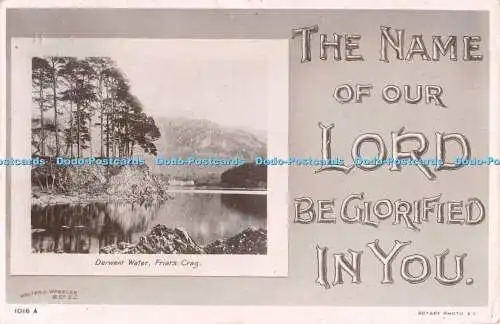 THE NAME
OF OUR
LORD
BE GLORIFIED
IN YOU.
Dodo-Postcards Dodo-Postcards Dodo-Postcards Dodo-Postcards
Derwent Water, Friars Crag.
1016 A
ROTARY PHOTO E.C.